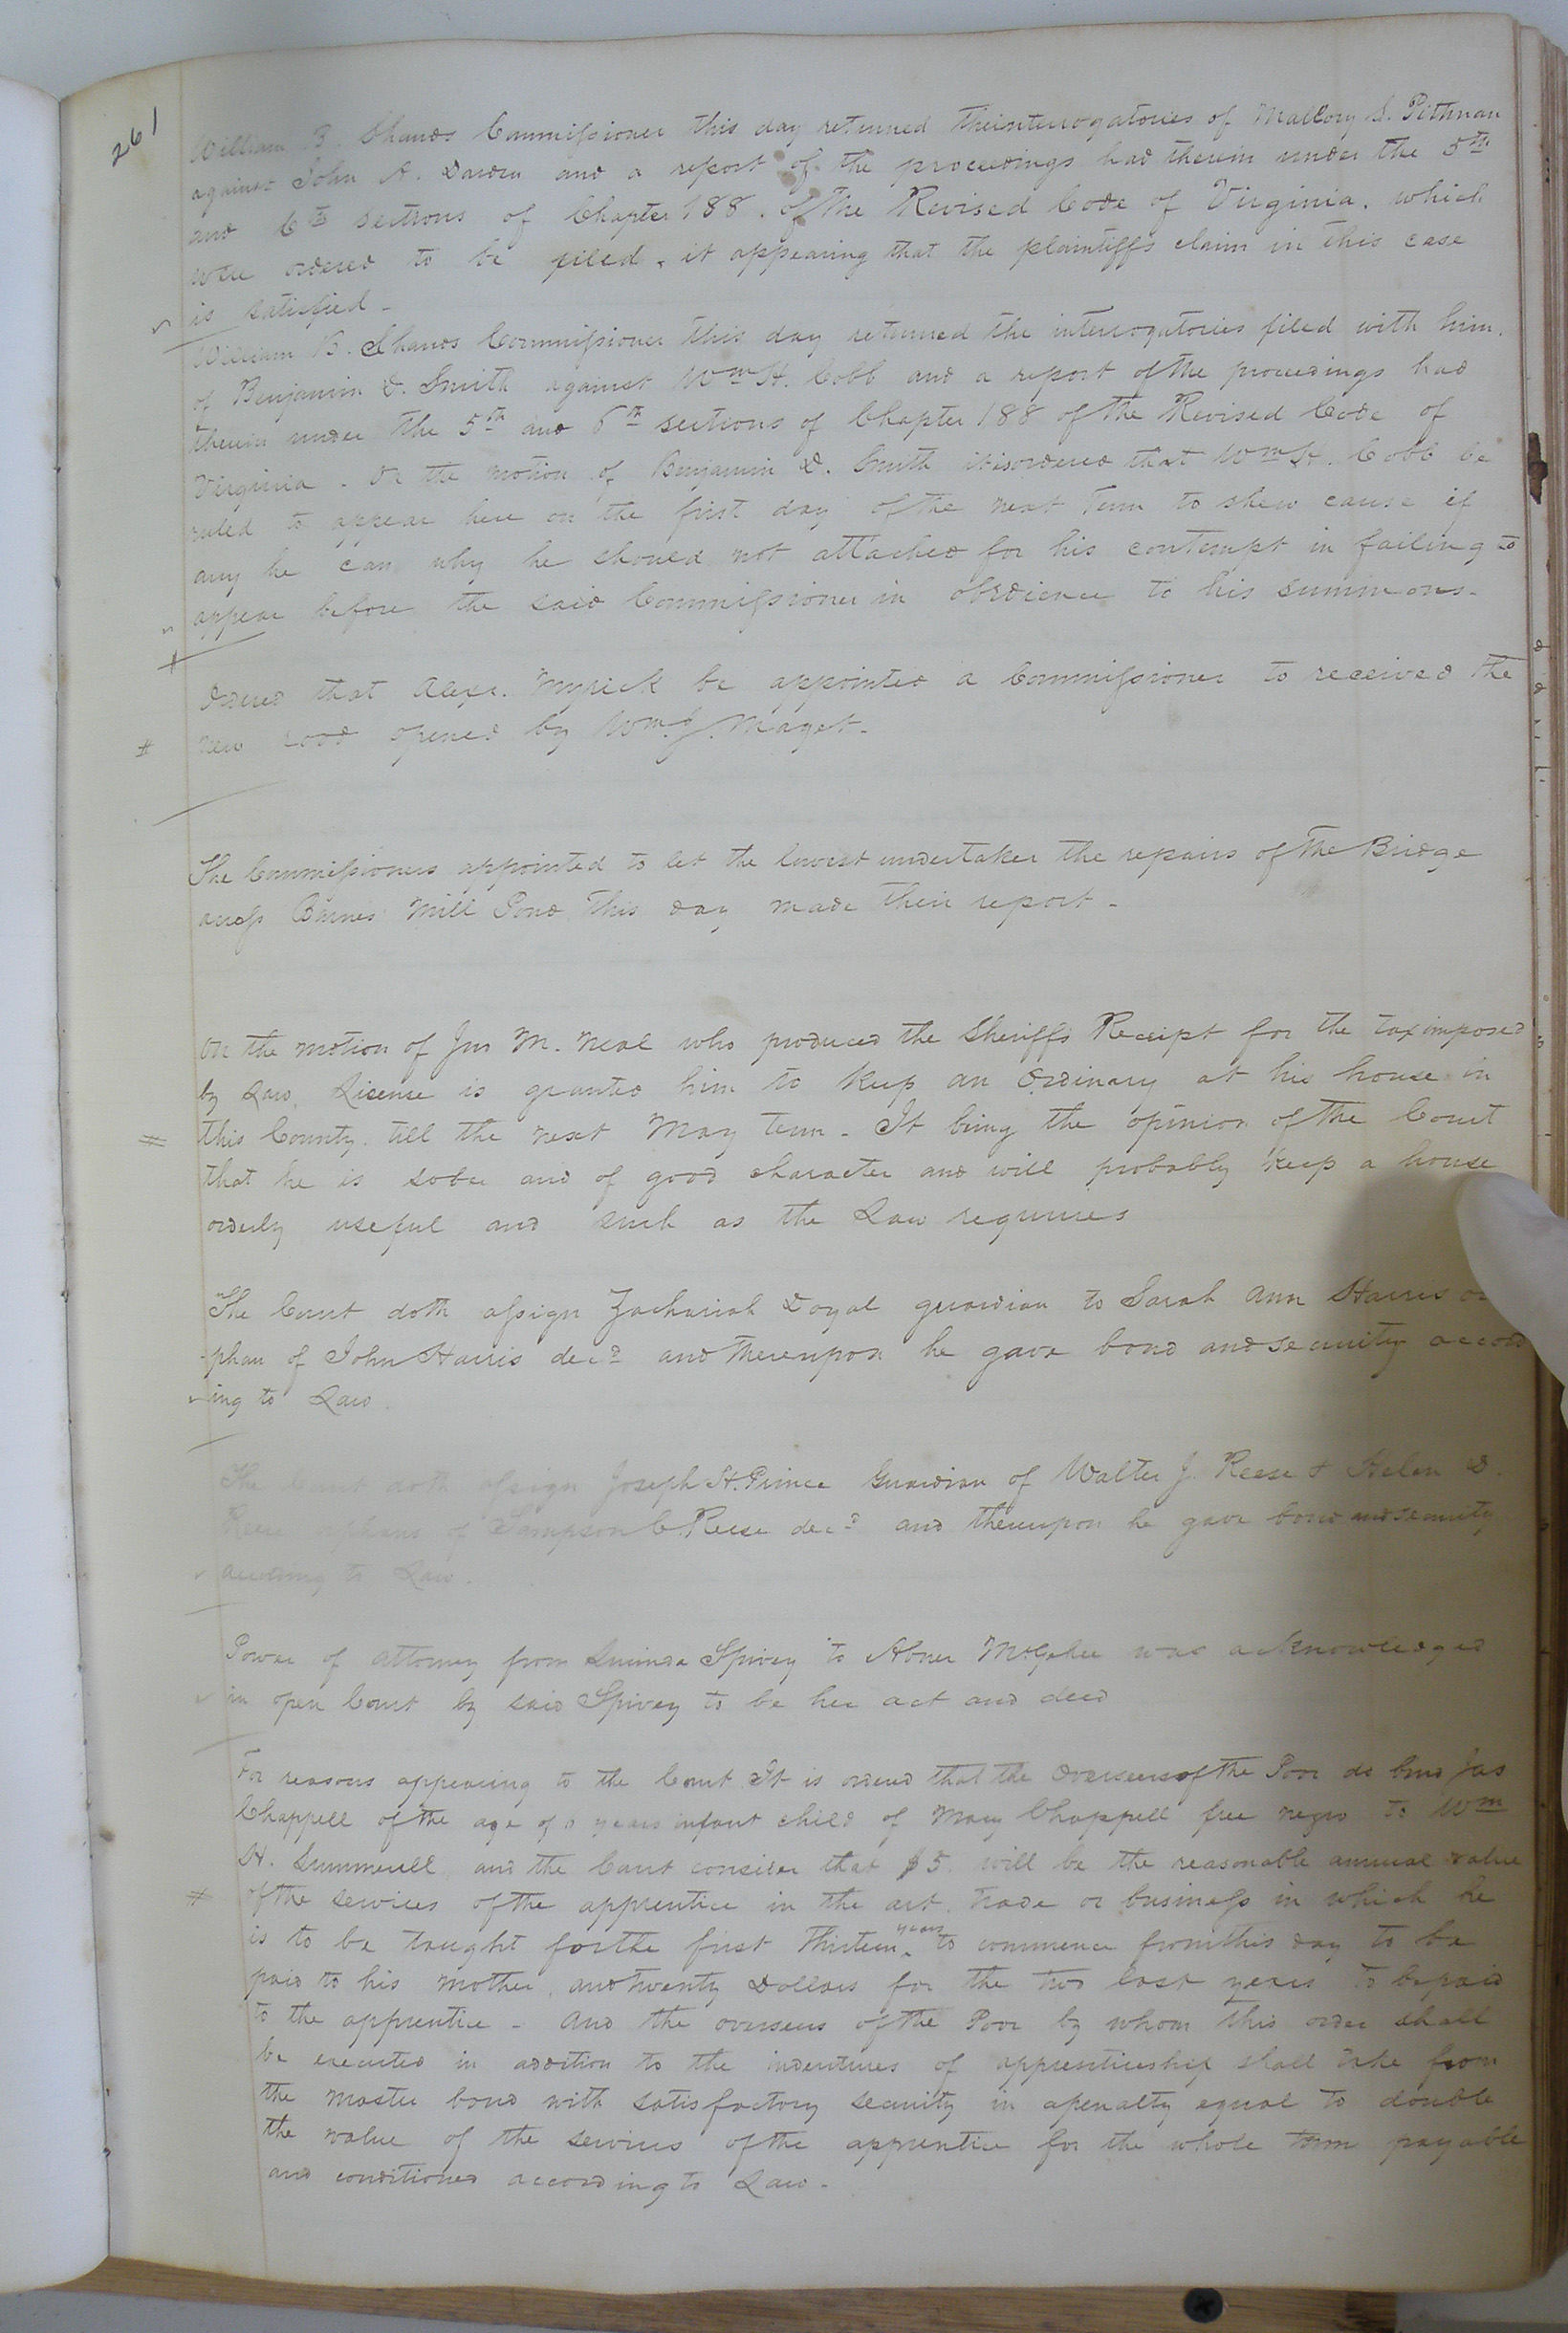 261
William B. Shands Commissioner this day returned the interrogatories of Mallory S. Pittman
against John A. Darden and a report of the proceedings had therein under the 5th
and 6th sections of Chapter 188. of the Revised Code of Virginia. which
were ordered to be filed, it appearing that the plaintiffs claim in this case
is satisfied -
William B. Shands Commissioner this day returned the interrogatories filed with him.
of Benjamin D. Smith against Wm H. Cobb and a report of the proceedings had
therein under the 5th and 6th sections of Chapter 188 of the Revised Code of
Virginia - On the motion of Benjamin D. Smith it is ordered that Wm H. Cobb be
ruled to appear here on the first day of the next Term to shew cause if
any he can why he should not attached for his contempt in failing to
appear before the said Commissioner in obedience to his summons -
Ordered that Alexr. Myrick be appointed a Commissioner to received the
# new road opened by Wm. J. Maget -
The Commissioners appointed to let the lowest undertaker the repairs of the Bridge
across Barnes Mill Pond this day made their report -
On the motion of Jno M. Neal who produced the Sheriffs Receipt for the tax imposed
by Law, Lisense is granted him to keep an Ordinary at his house in
# this County, till the next May term - It being the opinion of the Court
that he is sober and of good character and will probably keep a house
orderly useful and such as the Law requires
The Court doth assign Zachariah Doyal guardian to Sarah Ann Harris or
-phan of John Harris decd and thereupon he gave bond and security accord
ing to Law.
The Court doth assign Joseph H. Prince Guardian of Walter J. Reese & Helen D.
Reese orphans of Sampson C Reese decd and thereupon he gave bond and security
according to Law.
Power of attorney from Spivey to Abner McGehee was acknowledged
in open Court by said Spivey to be her act and deed
For reasons appearing to the Court It is ordered that the Overseers of the Poor do bind Jas
Chappell of the age of years infant child of Mary Chappell free negro to Wm
H. Summerell and the Court consider that $5. will be the reasonable annual value
# of the services of the apprentice in the art, trade or business in which he
is to be taught for the first Thirteen years to commence from this day to be
paid to his mother, and twenty Dollars for the two last years to be paid
to the apprentice - And the overseers of the Poor by whom this order shall
be executed in addition to the indentures of apprenticeship shall take from
the master bond with satisfactory security in a penalty equal to double
the value of the services of the apprentice for the whole term payable
and conditioned according to Law -